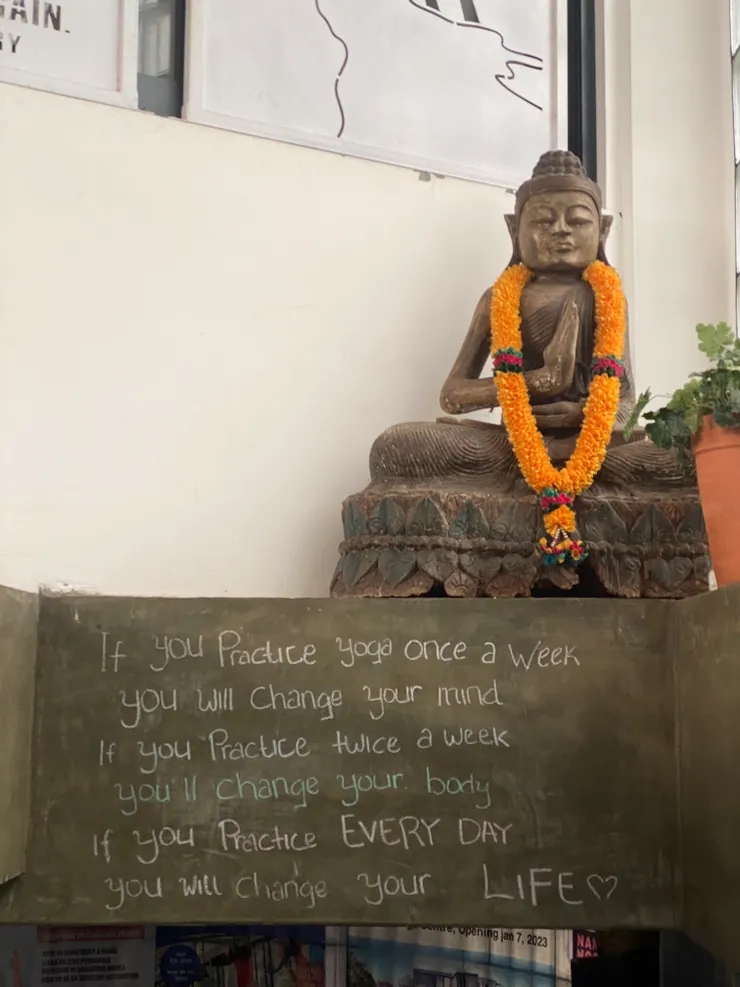 AIN.
BY
If you Practice yoga once a week
you will change your mind
If you Practice twice a week
you'll change your body
If you Practice EVERY DAY
you will change your LIFE♡
Centre, Opening Jan 7, 2023